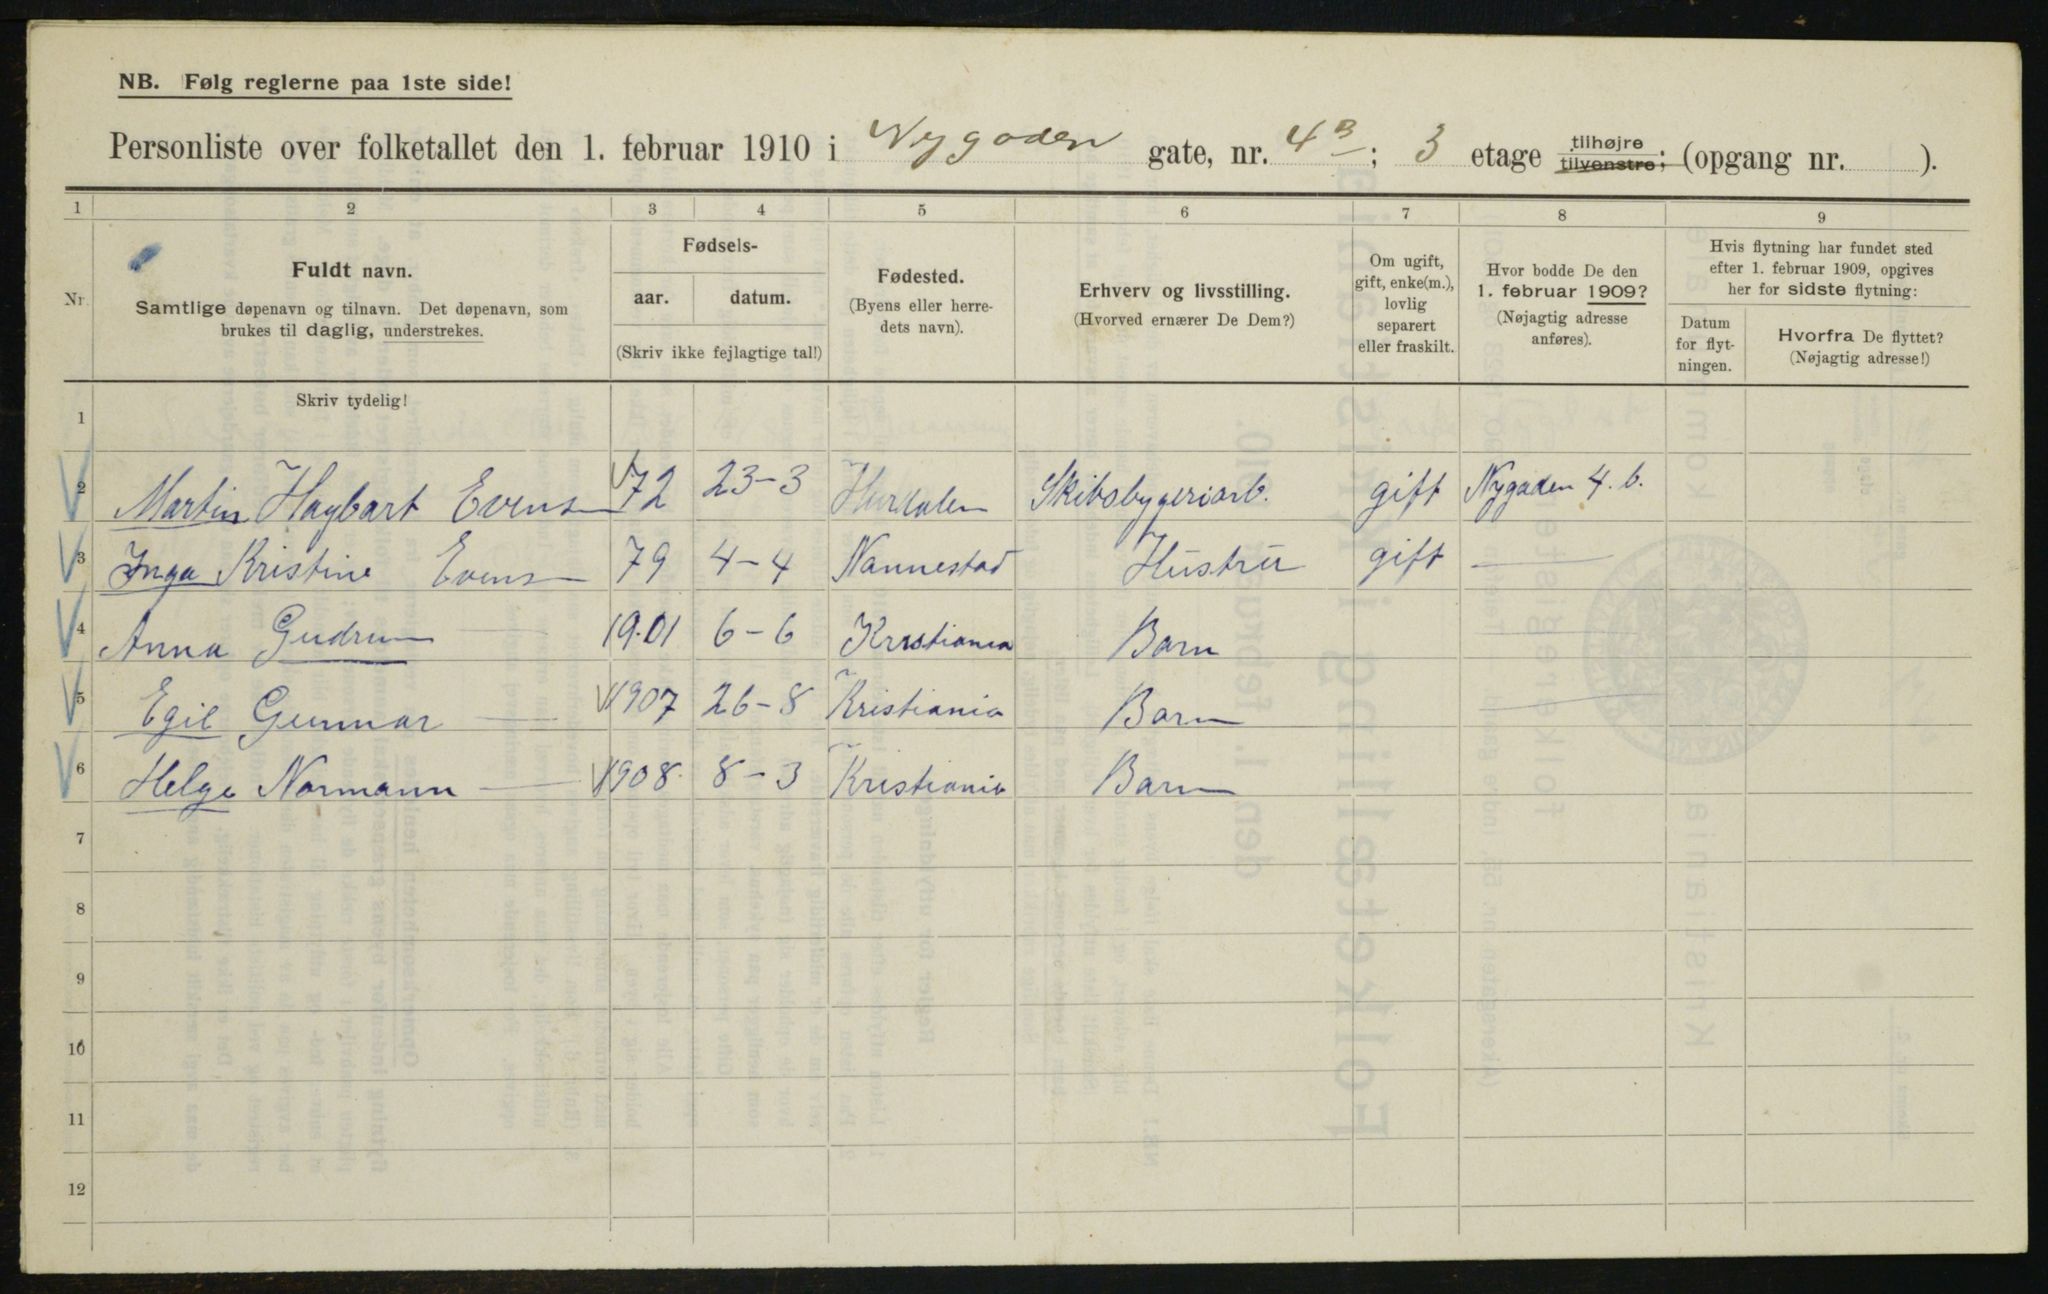 NB. Følg reglerne paa 1ste side!
Personliste over folketallet den 1. februar 1910 i Nygaden gate, nr. 4B; 3 etage tilhøjre tilvenstre; (opgang nr. ).
1 2 3 4 5 6 7 8 9
Nr. Fuldt navn. Samtlige døpenavn og tilnavn. Det døpenavn, som brukes til daglig, understrekes.
Fødsels- aar. datum. (Skriv ikke fejlagtige tal!)
Fødested. (Byens eller herredets navn).
Erhverv og livsstilling. (Hvorved ernærer De Dem?)
Om ugift, gift, enke(m.), lovlig separert eller fraskilt.
Hvor bodde De den 1. februar 1909? (Nøjagtig adresse anføres).
Hvis flytning har fundet sted efter 1. februar 1909, opgives her for sidste flytning:
Datum for flytningen. Hvorfra De flyttet? (Nøjagtig adresse!)
Skriv tydelig!
1
2 Martin Haybart Evens 72 23-3 Hurdalen Skibsbyggeriarb. gift Nygaden 4. b.
3 Inga Kristine Evens 79 4-4 Nannestad Hustru gift —
4 Anna Gudrun — 1901 6-6 Kristiania Barn —
5 Egil Gunnar — 1907 26-8 Kristiania Barn —
6 Helge Normann — 1908 8-3 Kristiania Barn
7
8
9
10
11
12